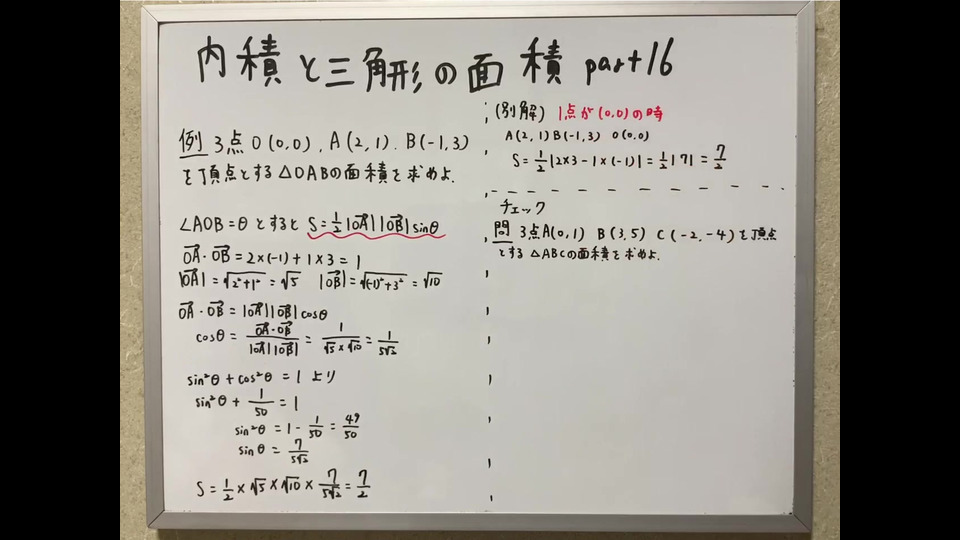 内積と三角形の面積 part16
例 3点 O(0,0), A(2,1), B(-1,3)
を頂点とする△OABの面積を求めよ.
∠AOB=θ とすると S=1/2|OA→||OB→|sinθ
OA→・OB→=2×(-1)+1×3=1
|OA→|=√(2²+1²)=√5 |OB→|=√((-1)²+3²)=√10
OA→・OB→=|OA→||OB→|cosθ
cosθ=OA→・OB→/|OA→||OB→|=1/(√5×√10)=1/5√2
sin²θ+cos²θ=1 より
sin²θ+1/50=1
sin²θ=1-1/50=49/50
sinθ=7/5√2
S=1/2×√5×√10×7/5√2=7/2
(別解) 1点が(0,0)の時
A(2,1) B(-1,3) O(0,0)
S=1/2|2×3-1×(-1)|=1/2|7|=7/2
チェック
問 3点A(0,1) B(3,5) C(-2,-4)を頂点
とする△ABCの面積を求めよ.